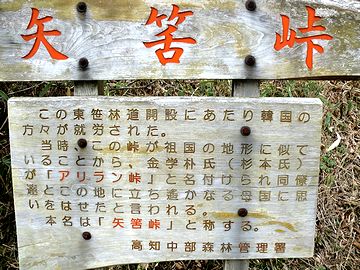 矢筈峠
この東笹林道開設にあたり韓国の
方々が就労された。
当時、この峠が祖国の地形に似て
いることから、金学朴氏（杉本氏）
が「アリラン峠」と名付けられ同僚
達とこの地に立ち遥かなる母国に思
いをはせたと言われる。
本名は「矢筈峠」と称する。
高知中部森林管理署